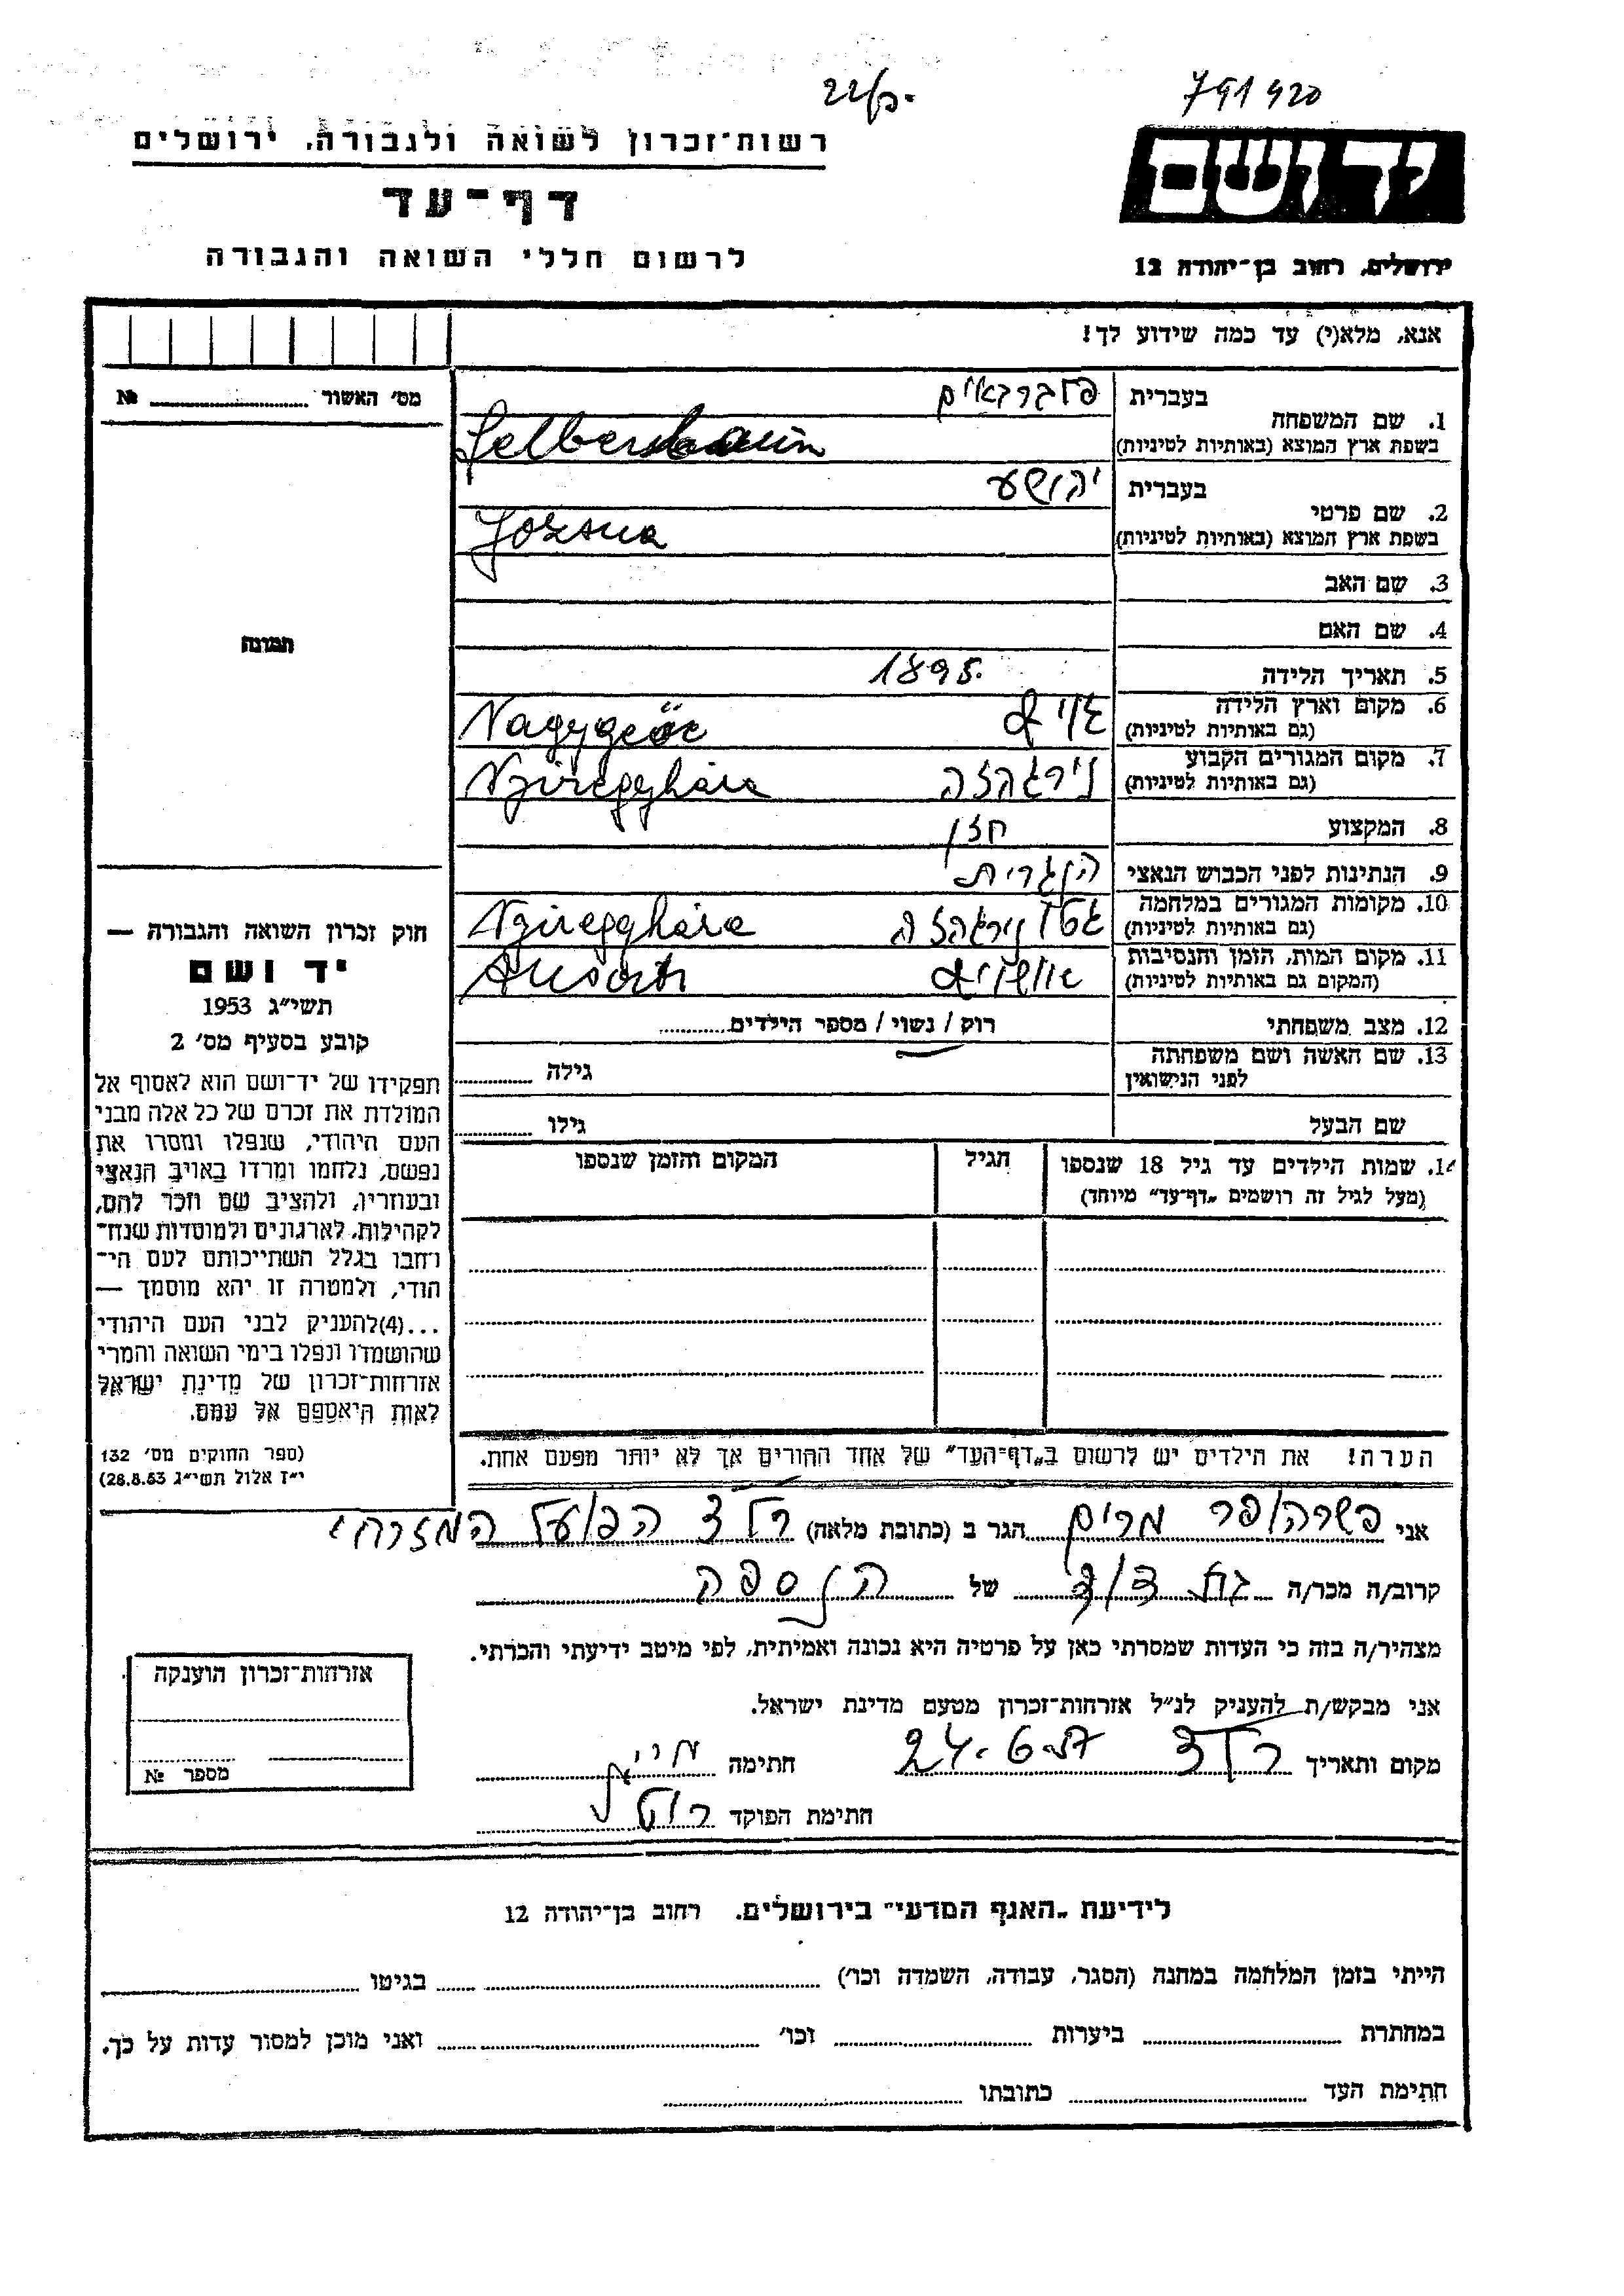 22/כ.
791420
רשות־זכרון לשואה ולגבורה, ירושלים
דף־עד
לרשום חללי השואה והגבורה
יד ושם
ירושלים, רחוב בן־יהודה 12
אנא, מלא(י) עד כמה שידוע לך!
מס׳ האשור ........ №
תמונה
1. שם המשפחה
בעברית
בשפת ארץ המוצא (באותיות לטיניות)
2. שם פרטי
בעברית יהושע
בשפת ארץ המוצא (באותיות לטיניות) Jozsua
3. שם האב
4. שם האם
5. תאריך הלידה 1895.
6. מקום וארץ הלידה
(גם באותיות לטיניות)
7. מקום המגורים הקבוע נירגהזה
(גם באותיות לטיניות) Nyiregyháza
8. המקצוע חזן
9. הנתינות לפני הכבוש הנאצי הונגרית
10. מקומות המגורים במלחמה גטו נירגהזה
(גם באותיות לטיניות) Nyiregyháza
11. מקום המות, הזמן והנסיבות
(המקום גם באותיות לטיניות)
12. מצב משפחתי רוק / נשוי / מספר הילדים........
13. שם האשה ושם משפחתה
לפני הנישואין
גילה ........
שם הבעל גילו ........
14. שמות הילדים עד גיל 18 שנספו
(מעל לגיל זה רושמים „דף־עד” מיוחד)
הגיל
המקום והזמן שנספו
הערה! את הילדים יש לרשום ב„דף־העד” של אחד ההורים אך לא יותר מפעם אחת.
חוק זכרון השואה והגבורה —
יד ושם
תשי״ג 1953
קובע בסעיף מס׳ 2
תפקידו של יד־ושם הוא לאסוף אל
המולדת את זכרם של כל אלה מבני
העם היהודי, שנפלו ומסרו את
נפשם, נלחמו ומרדו באויב הנאצי
ובעוזריו, ולהציב שם וזכר להם,
לקהילות, לארגונים ולמוסדות שנח־
רחבו בגלל השתייכותם לעם הי־
הודי, ולמטרה זו יהא מוסמך —
...(4)להעניק לבני העם היהודי
שהושמדו ונפלו בימי השואה והמרי
אזרחות־זכרון של מדינת ישראל
לאות היאספם אל עמם.
(ספר החוקים מס׳ 132
י״ז אלול תשי״ג 28.8.53)
אני מרים הגר ב (כתובת מלאה) הפועל המזרחי
קרוב/ה מכר/ה בת דוד של הנספה
מצהיר/ה בזה כי העדות שמסרתי כאן על פרטיה היא נכונה ואמיתית, לפי מיטב ידיעתי והכרתי.
אני מבקש/ת להעניק לנ״ל אזרחות־זכרון מטעם מדינת ישראל.
מקום ותאריך 24.6.57 חתימה
חתימת הפוקד
אזרחות־זכרון הוענקה
מספר №
לידיעת „האגף המדעי” בירושלים. רחוב בן־יהודה 12
הייתי בזמן המלחמה במחנה (הסגר, עבודה, השמדה וכו׳) ........ בגיטו ........
במחתרת ........ ביערות ........ וכו׳ ........ ואני מוכן למסור עדות על כך.
חתימת העד ........ כתובתו ........